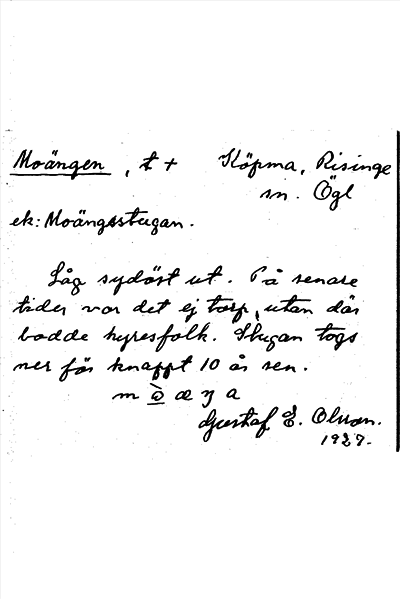 Moängen, t + Köpma, Risinge
sn. Ögl
ek: Moängsstugan.
Låg sydöst ut. På senare
tider var det ej torp, utan där
bodde hyresfolk. Stugan togs
ner för knappt 10 år sen.
Gustaf E. Olsson.
1927.